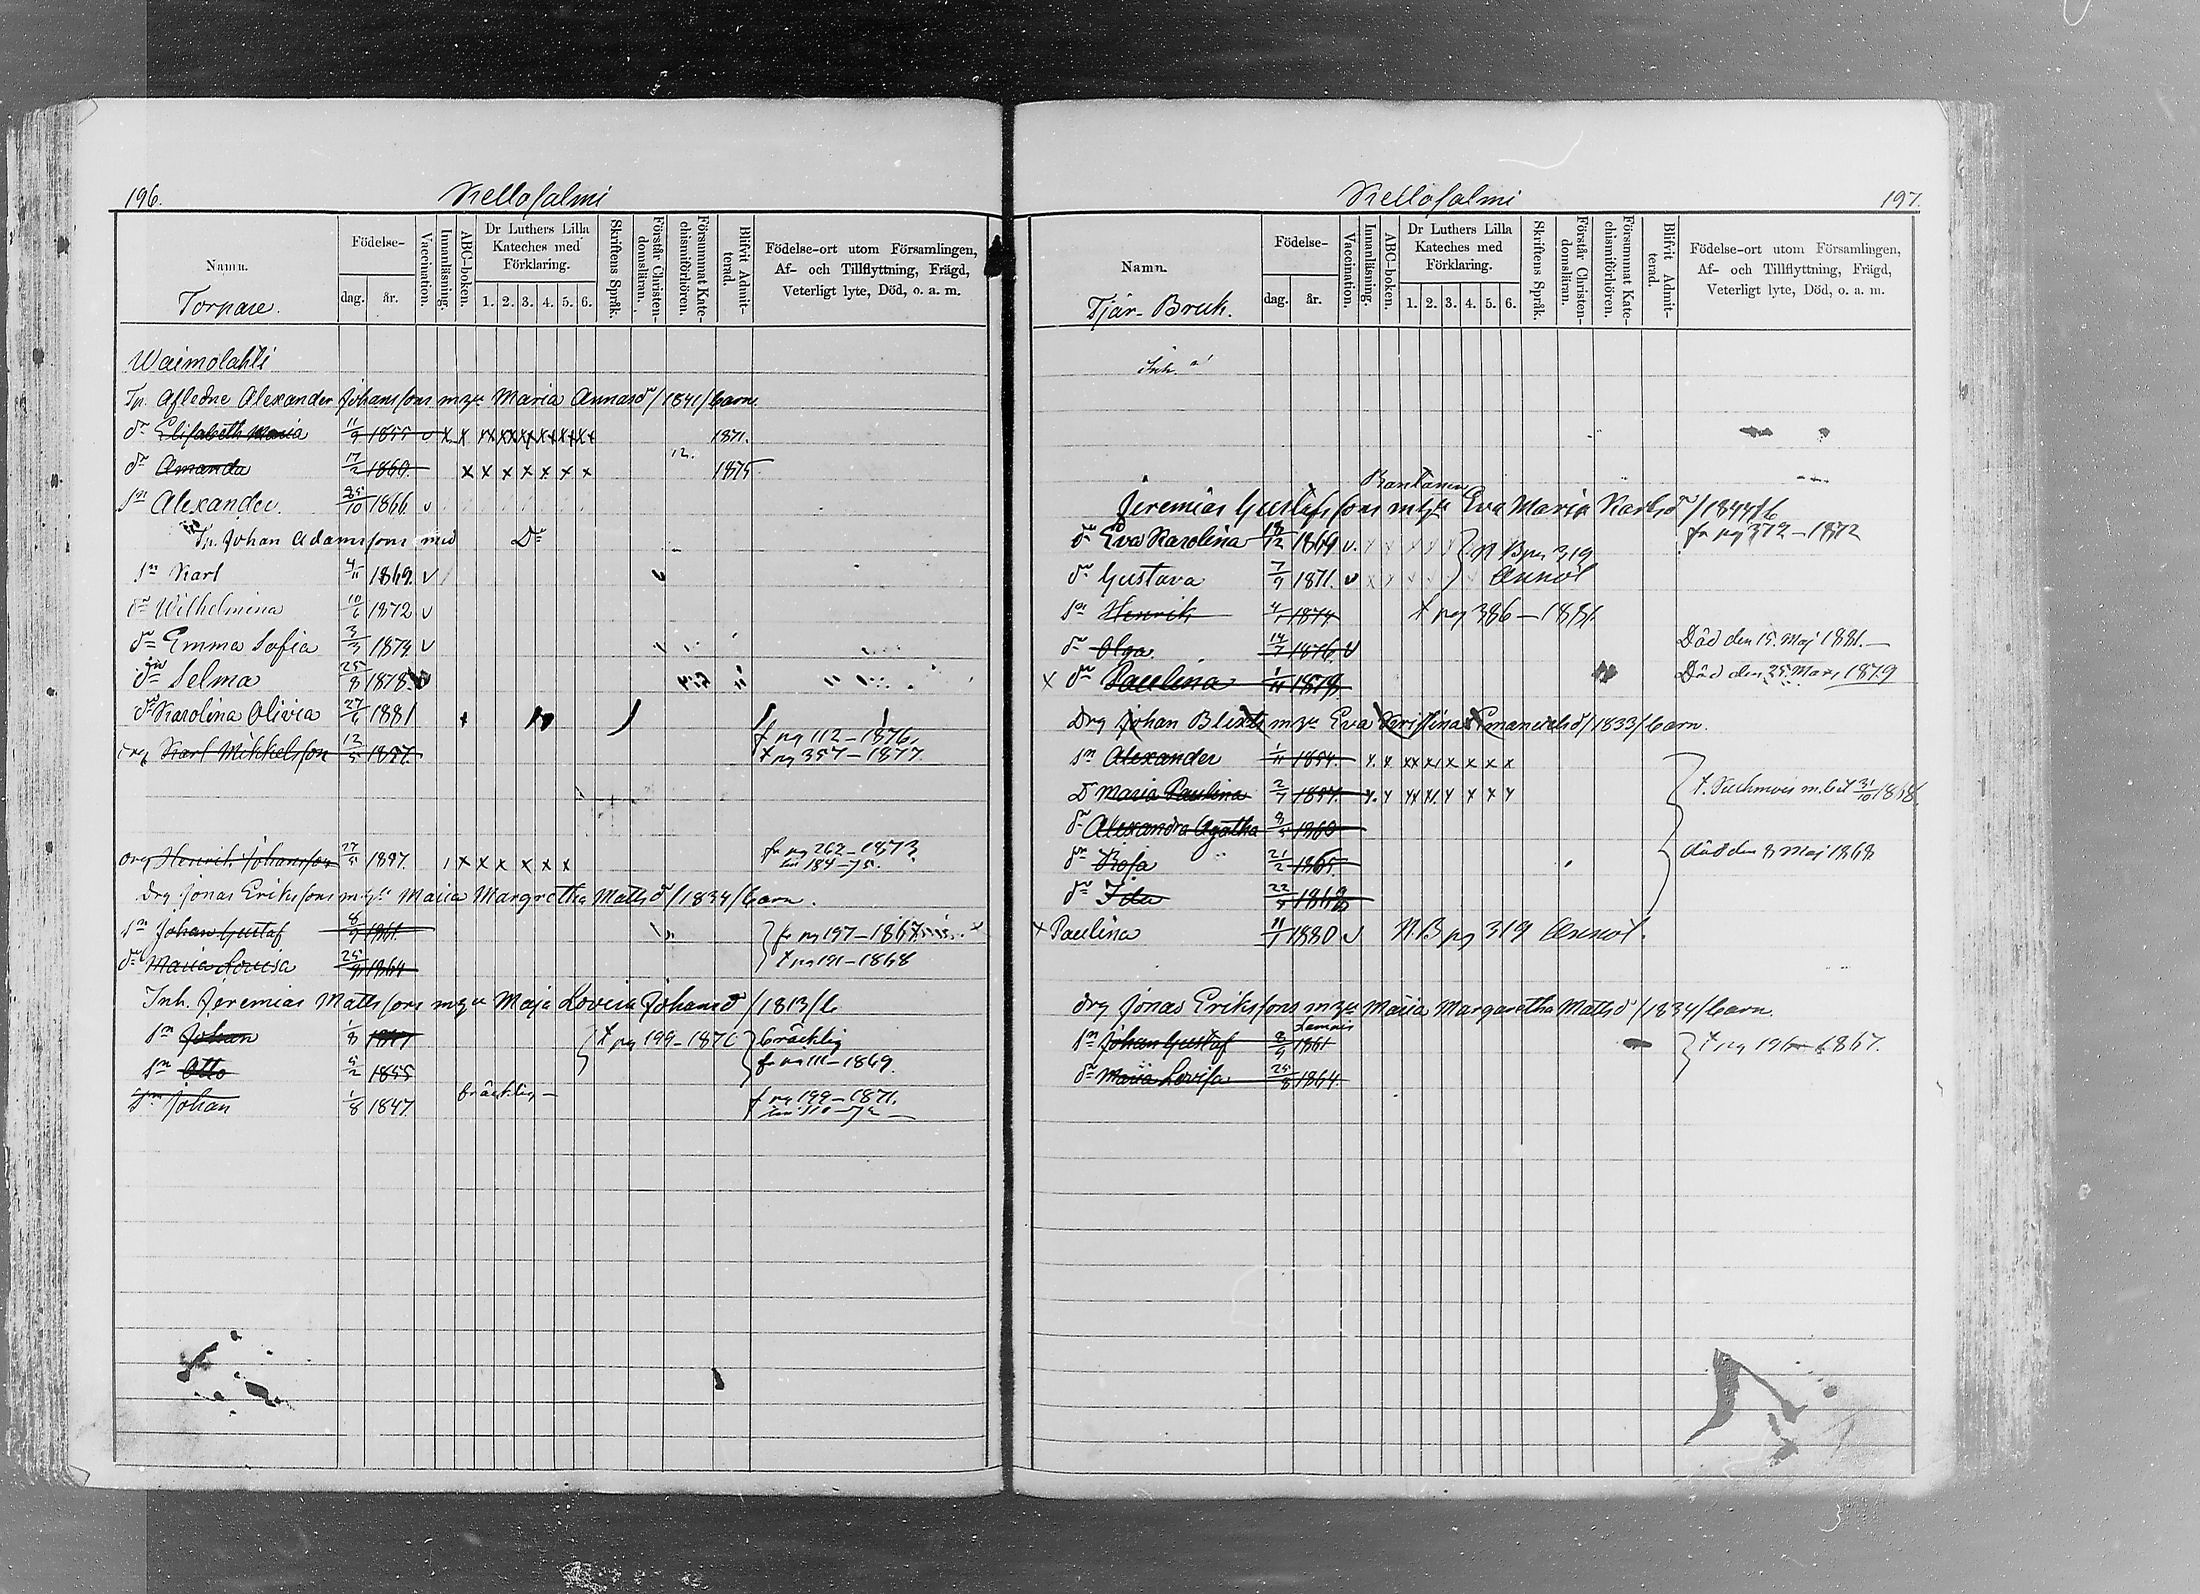 196. Kellosalmi
Namn. Födelse- dag. år. Vaccination. Innanläsning. ABC-boken. Dr Luthers Lilla Kateches med Förklaring. 1. 2. 3. 4. 5. 6. Skriftens Språk. Förstår Christendomsläran. Försummat Katechismiförhören. Blifvit Admitterad. Födelse-ort utom Församlingen, Af- och Tillflyttning, Frägd, Veterligt lyte, Död, o. a. m.
Torpare.
Waimolahti
Tp. Afledne Alexander Johanssons m Maria Annasdr /1841/ barn
dr Elisabeth Maria 11/9 1855 v x x xx xx xx xx xx xx 1871.
dr Amanda 17/2 1860. x x x x x x x 1875
sn Alexander. 25/10 1866 v
Tp. Johan Adamssons med Do
sn Karl 4/11 1869. v
dr Wilhelmina 10/6 1872 v
dr Emma Sofia 3/3 1874 v
dr Selma 25/8 1878. v
dr Karolina Olivia 27/6 1881
drg Karl Mikkelsson 12/5 1857. f pg 112-1876. t pg 357-1877
drg Henrik Johansson 27/5 1857. x x x x x x fr pg 262-1873. 184-75.
Drg Jonas Erikssons m Maria Margretha Matts dr /1834/ barn.
sn Johan Gustaf 8/9 1861. fr pg 197-1867
dr Maria Lovisa 25/8 1864 t pg 191-1868
Inh. Jeremias Mattssons m Maja Lovisa Johans dr /1813/ b
sn Johan 1/8 1847 t pg 199-1870 bräcklig
sn Otto 5/2 1855 fr pg 111-1869
sn Johan 1/8 1847 bräcklig f pg 199-1871.
Kellosalmi 197.
Namn. Födelse- dag. år. Vaccination. Innanläsning. ABC-boken. Dr Luthers Lilla Kateches med Förklaring. 1. 2. 3. 4. 5. 6. Skriftens Språk. Förstår Christendomsläran. Försummat Katechismiförhören. Blifvit Admitterad. Födelse-ort utom Församlingen, Af- och Tillflyttning, Frägd, Veterligt lyte, Död, o. a. m.
Tjär-Bruk.
Inh.
Rantanen
Jeremias Gustafssons m Eva Maria Karls dr /1844/ b
dr Eva Karolina 18/12 1869 v. N B pg 319 fr pg 372-1872
dr Gustava 7/9 1871. v Annot
sn Henrik 1874 t pg 386-1881.
dr Olga 14/7 1876. v Död den 15. Maj 1881.
x dr Paulina 1/11 1878 Död den 25 Mars 1879
Drg Johan Blixts m Eva Kristina Emanuels dr /1833/ barn.
sn Alexander 1/11 1854. x x xx xx x x x x
D Maria Paulina 2/7 1857. x. x xx xx. x x x x t. m. bet 31/10 1868.
dr Alexandra Agatha 8/5 1860
dr Rosa 21/2 1865. död den 8 Maj 1868
dr Ida 22/5 1868
x Paulina 11/7 1880 v N B pg 319 Annot.
drg Jonas Erikssons m Maria Margaretha Matts dr /1834/ barn.
sn Johan Gustaf 8/9 1861 t pg 196 1867.
dr Maria Lovisa 25/8 1864.